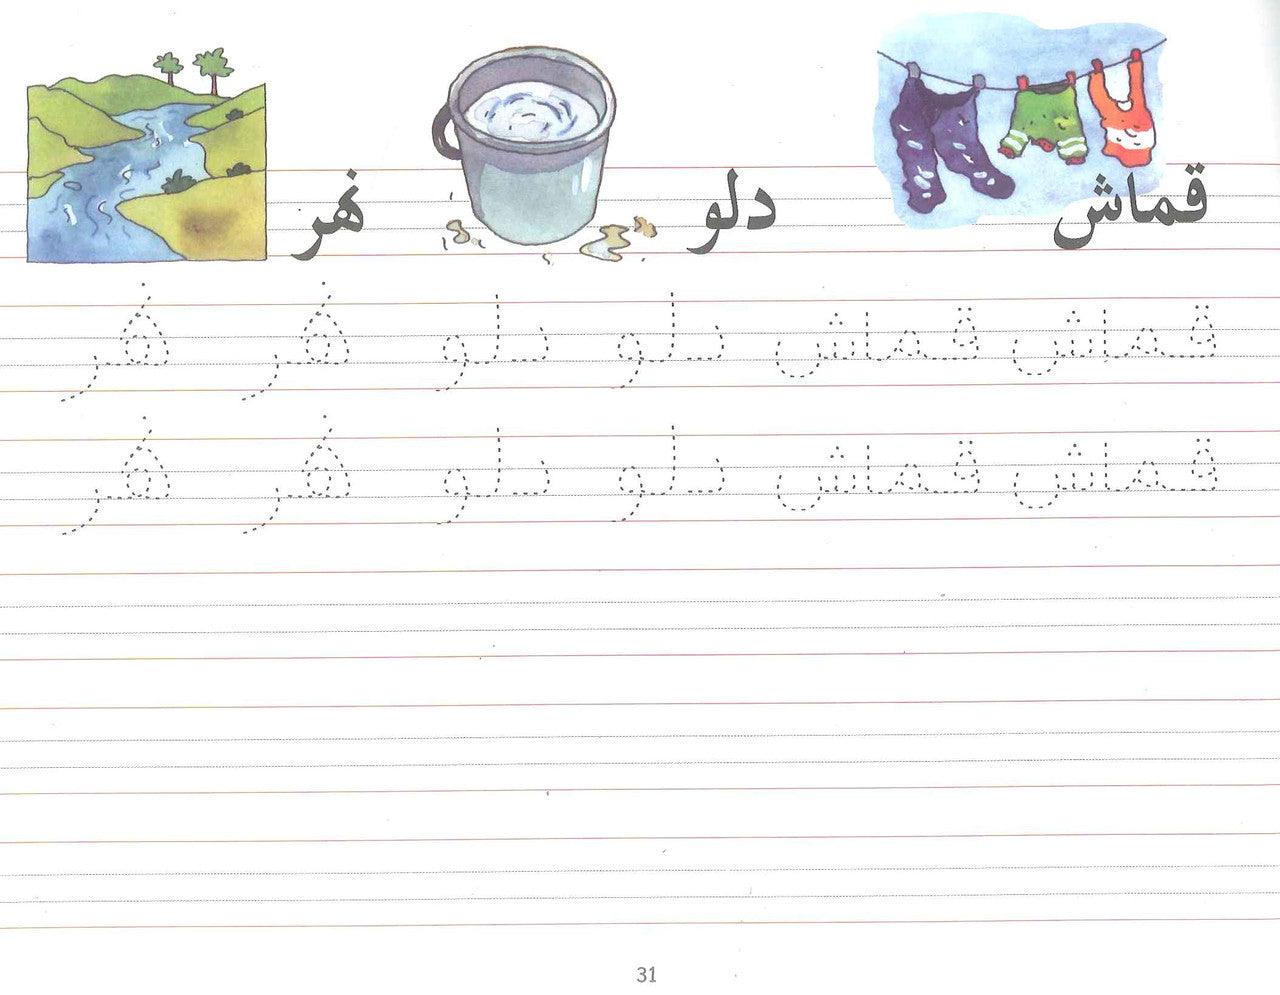 قماش دلو نهر
قماش قماش دلو دلو نهر نهر
قماش قماش دلو دلو نهر نهر
31